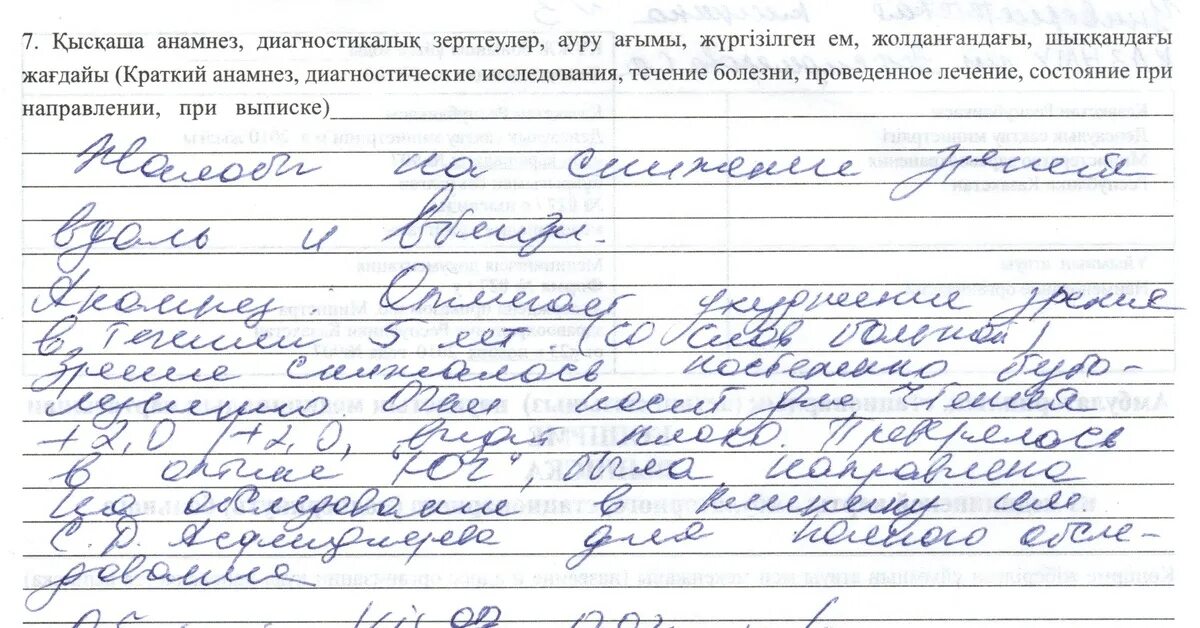 7. Қысқаша анамнез, диагностикалық зерттеулер, ауру ағымы, жүргізілген ем, жолданғандағы, шыққандағы
жағдайы (Краткий анамнез, диагностические исследования, течение болезни, проведенное лечение, состояние при
направлении, при выписке)
Жалобы на снижение зрения
вдаль и вблизи.
Анамнез. Отмечает ухудшение зрения
в течении 5 лет (со слов больной)
Зрение снижалось постепенно
носит для чтения
+2,0 /+2,0, видит плохо. Проверялось
в оптике "Юг", была направлена
на обследование в клинику им
С. Д. Асфендиярова для полного обсле-
дования